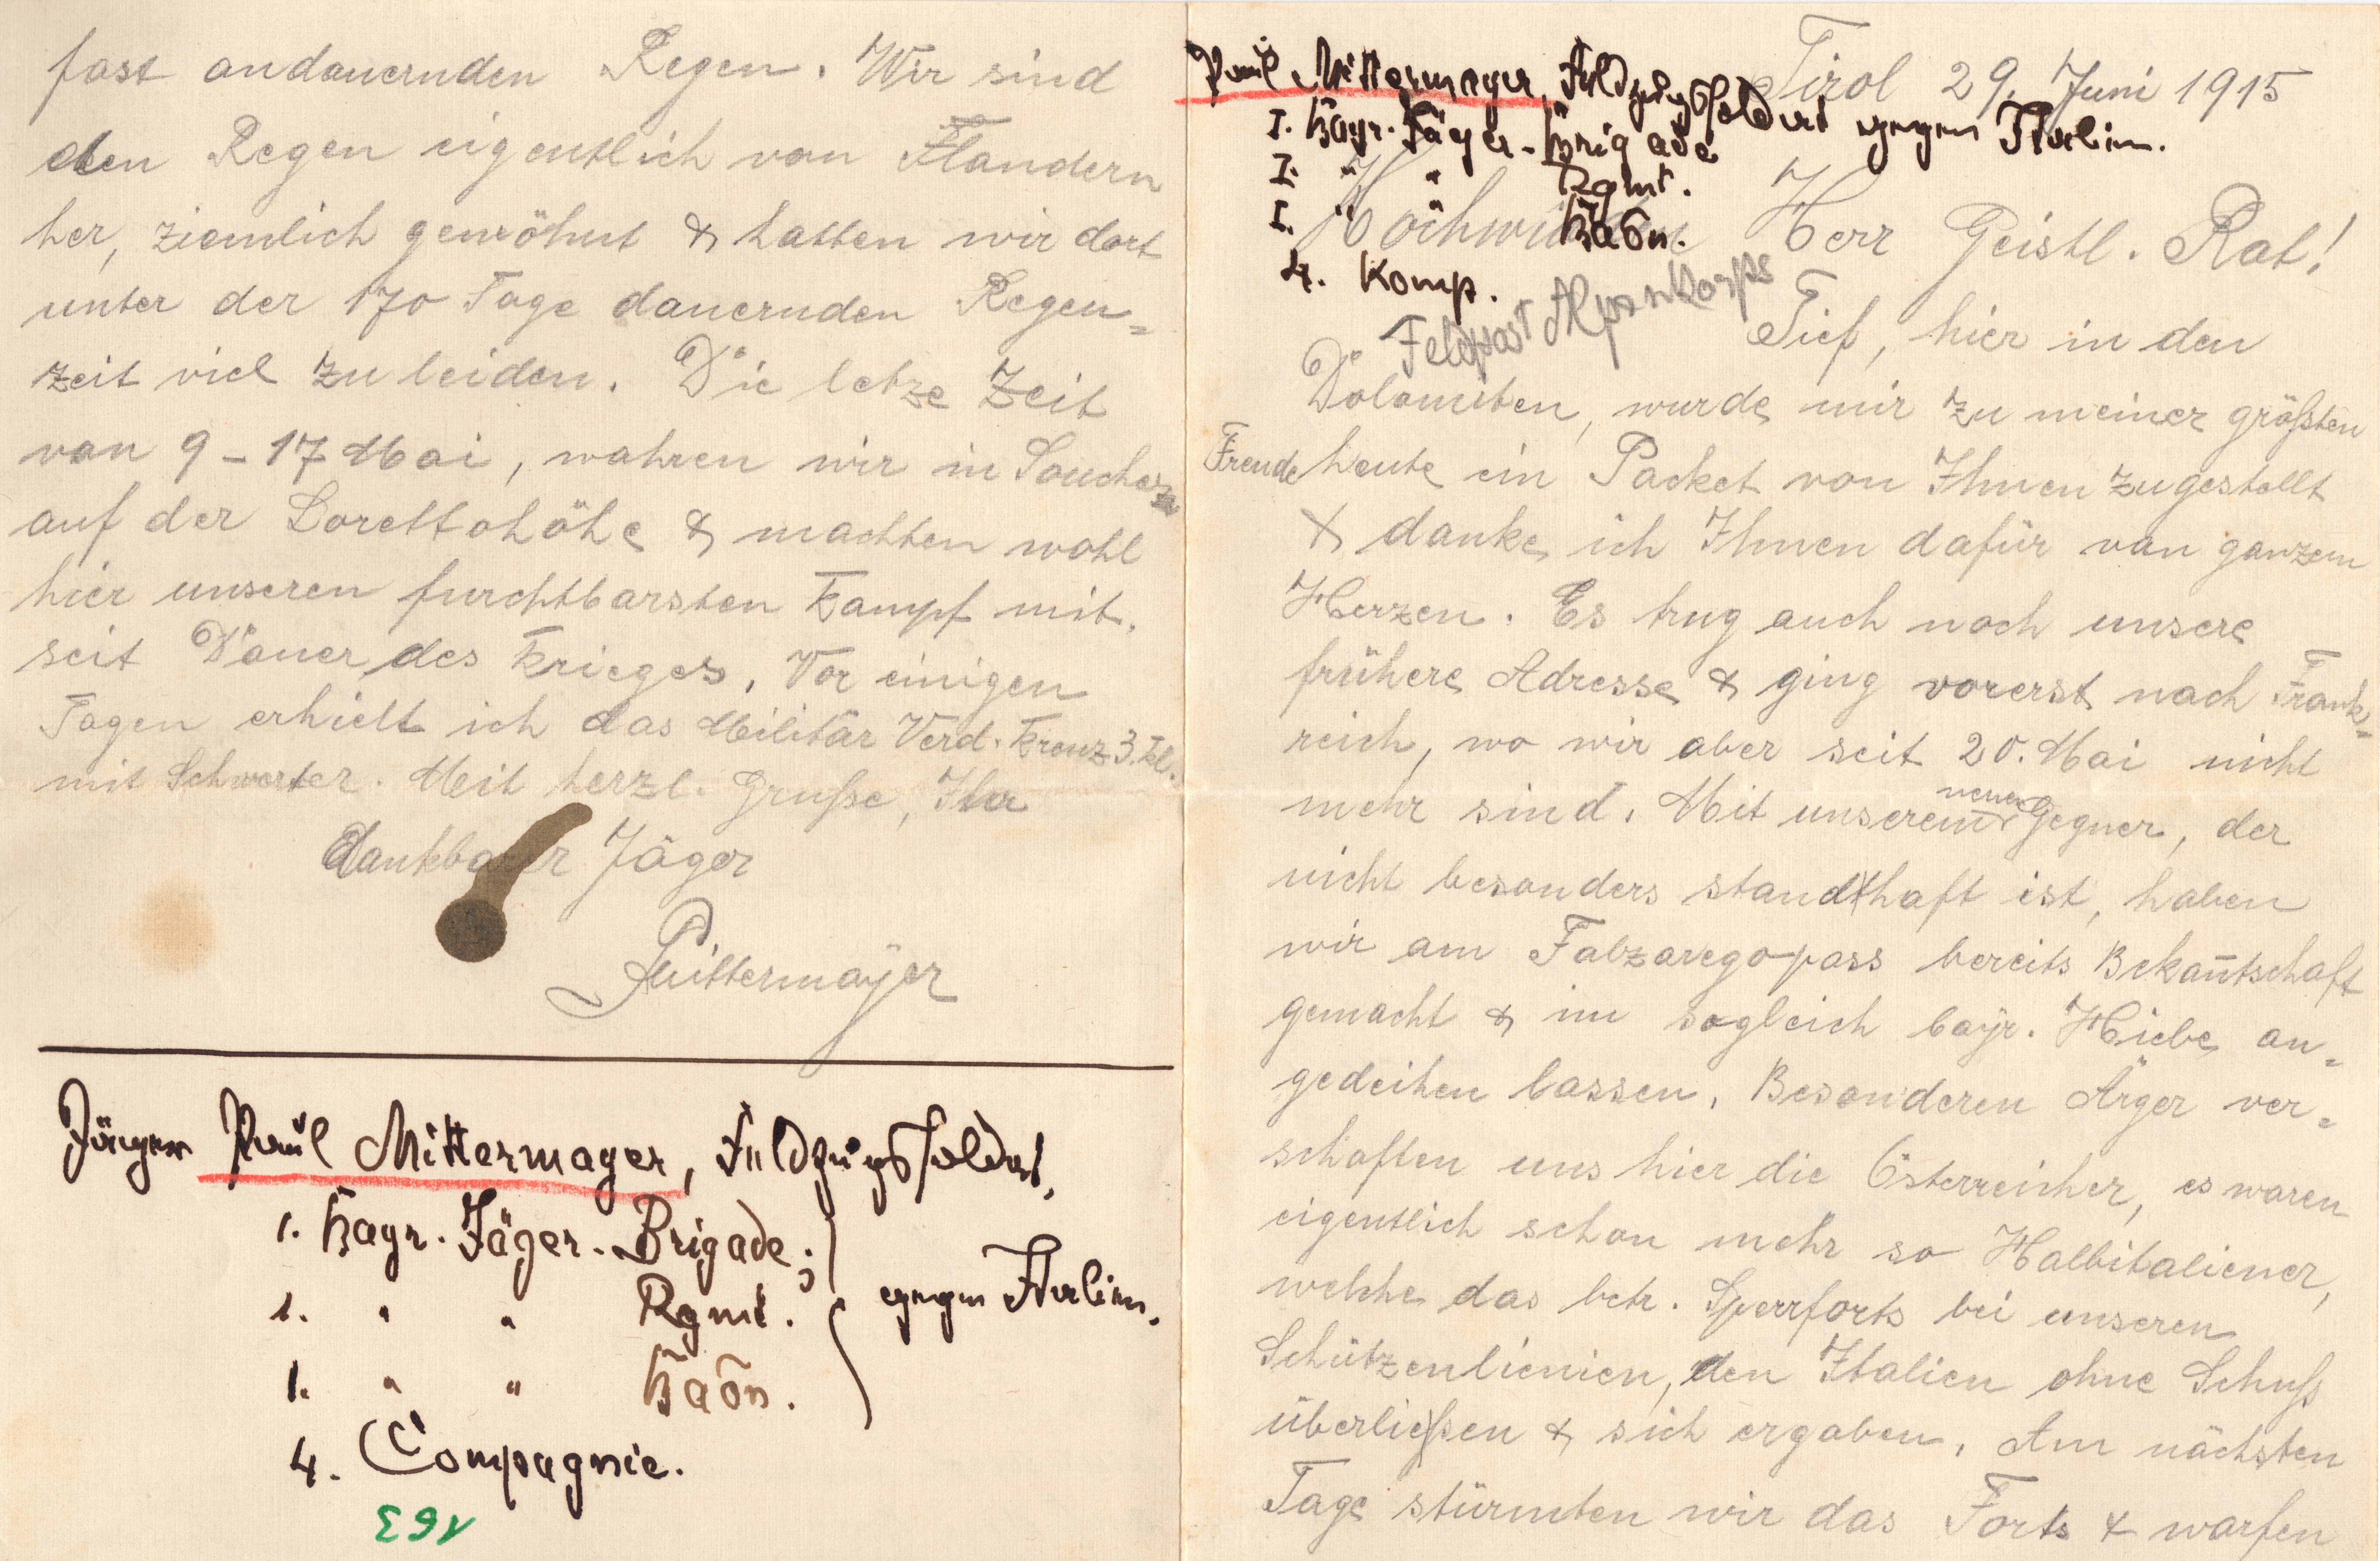 Paul Mittermayer, Feldzugssoldat gegen Italien.
I. Bayr. Jäger-Brigade
I. " " Rgmt.
I. " " Baon.
4. Komp.
Feldpost Alpenkorps
Tirol 29. Juni 1915
Hochwürden Herr Geistl. Rat!
Tief, hier in den
Dolomiten, wurde mir zu meiner größten
Freude heute ein Packet von Ihnen zugestellt
& danke ich Ihnen dafür von ganzem
Herzen. Es trug auch noch unsere
frühere Adresse & ging vorerst nach Frank-
reich, wo wir aber seit 20. Mai nicht
mehr sind. Mit unserem neuen Gegner, der
nicht besonders standhaft ist, haben
wir am Falzaregopass bereits Bekañtschaft
gemacht & im sogleich bayr. Hiebe an-
gedeihen lassen. Besonderen Ärger ver-
schaften uns hier die Österreicher, es waren
eigentlich schon mehr so Halbitaliener,
welche das betr. Sperrforts bei unseren
Schützenlienien, den Italien ohne Schuß
überließen & sich ergaben. Am nächsten
Tage stürmten wir das Forts & warfen
fast andauernden Regen. Wir sind
den Regen eigentlich von Flandern
her, ziemlich gewöhnt & hatten wir dort
unter der 170 Tage dauernden Regen-
zeit viel zu leiden. Die letze Zeit
von 9-17 Mai, wahren wir in Souchez
auf der Lorettohöhe & machten wohl
hier unseren furchtbarsten Kampf mit,
seit Dauer des Krieges. Vor einigen
Tagen erhielt ich das Militär Verd. Kreuz 3. Kl.
mit Schwerter. Mit herzl. Gruße, Ihr
dankbarer Jäger
PMittermayer
Jäger Paul Mittermayer, Feldzugssoldat,
1. Bayr. Jäger-Brigade;
1. " " Rgmt.
1. " " Baon.
gegen Italien.
4. Compagnie.
163